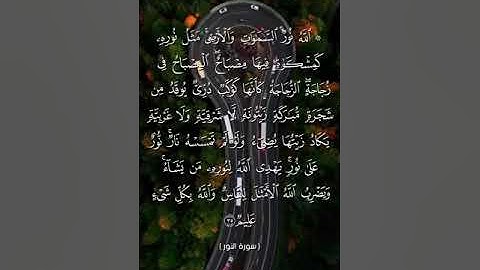 ۞ ٱللَّهُ نُورُ ٱلسَّمَٰوَٰتِ وَٱلْأَرْضِ ۚ مَثَلُ نُورِهِۦ
كَمِشْكَوٰةٍ فِيهَا مِصْبَاحٌ ۖ ٱلْمِصْبَاحُ فِى
زُجَاجَةٍ ۖ ٱلزُّجَاجَةُ كَأَنَّهَا كَوْكَبٌ دُرِّىٌّ يُوقَدُ مِن
شَجَرَةٍ مُّبَٰرَكَةٍ زَيْتُونَةٍ لَّا شَرْقِيَّةٍ وَلَا غَرْبِيَّةٍ
يَكَادُ زَيْتُهَا يُضِىٓءُ وَلَوْ لَمْ تَمْسَسْهُ نَارٌ ۚ نُّورٌ
عَلَىٰ نُورٍ ۗ يَهْدِى ٱللَّهُ لِنُورِهِۦ مَن يَشَآءُ ۚ
وَيَضْرِبُ ٱللَّهُ ٱلْأَمْثَٰلَ لِلنَّاسِ ۗ وَٱللَّهُ بِكُلِّ شَىْءٍ
عَلِيمٌ ٣٥
(سورة النور)